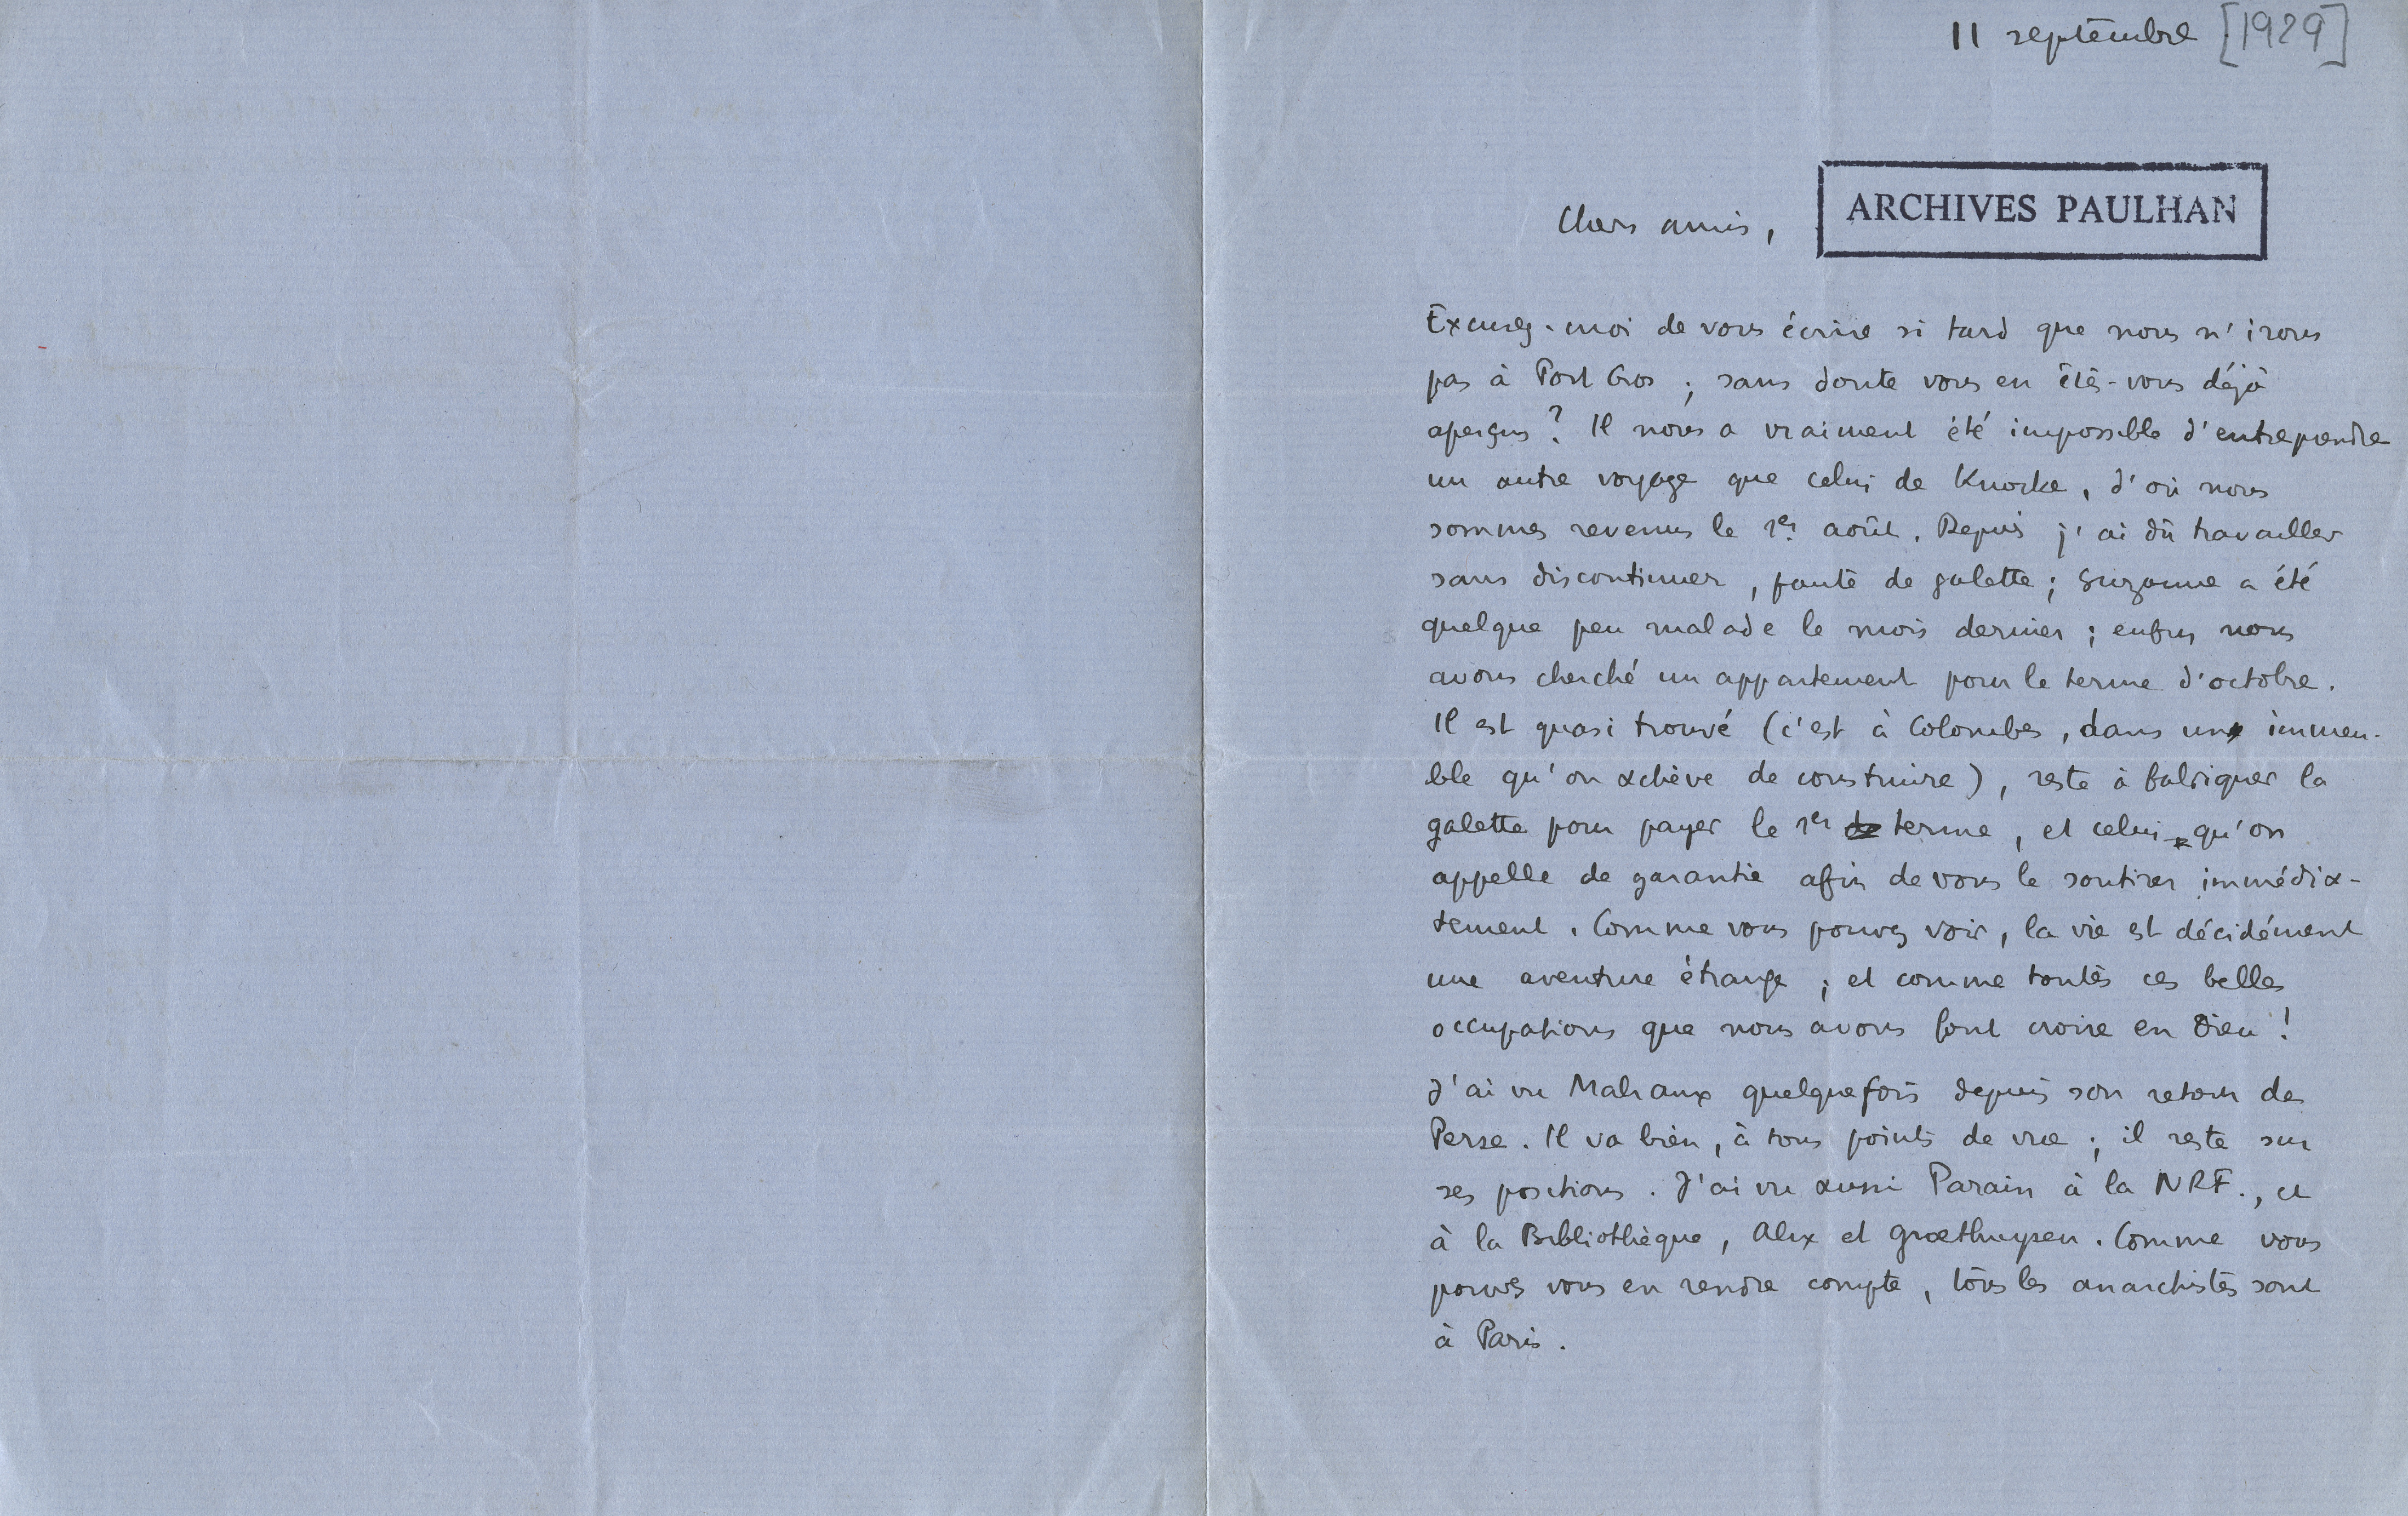 11 septembre [1929]
ARCHIVES PAULHAN
Chers amis,
Excusez-moi de vous écrire si tard que nous n'irons
pas à Port Cros ; sans doute vous en êtes-vous déjà
aperçus ? Il nous a vraiment été impossible d'entreprendre
un autre voyage que celui de Knocke, d'où nous
sommes revenus le 1er août. Depuis j'ai dû travailler
sans discontinuer, faute de galette ; Suzanne a été
quelque peu malade le mois dernier ; enfin nous
avons cherché un appartement pour le terme d'octobre.
Il est quasi trouvé (c'est à Colombes, dans un immeu-
ble qu'on achève de construire), reste à fabriquer la
galette pour payer le 1er terme, et celui qu'on
appelle de garantie afin de vous le soutirer immédia-
tement. Comme vous pouvez voir, la vie est décidément
une aventure étrange ; et comme toutes ces belles
occupations que nous avons font croire en Dieu !
J'ai vu Malraux quelquefois depuis son retour de
Perse. Il va bien, à tous points de vue ; il reste sur
ses positions. J'ai vu aussi Parain à la NRF., et
à la Bibliothèque, Alix et Groethuysen. Comme vous
pouvez vous en rendre compte, tous les anarchistes sont
à Paris.